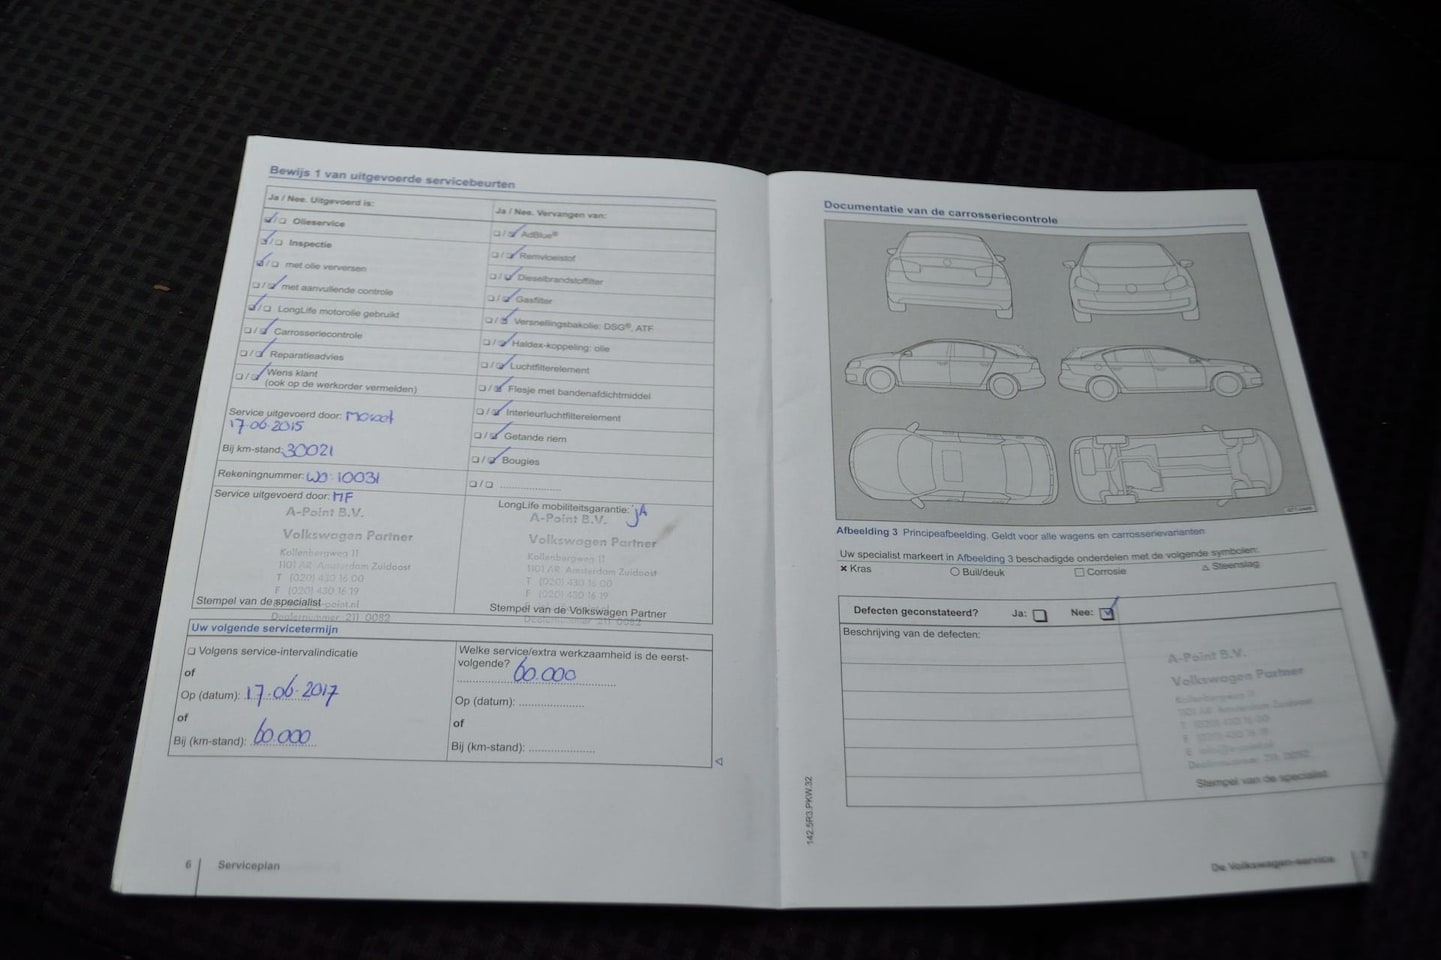 Bewijs 1 van uitgevoerde servicebeurten
Ja / Nee. Uitgevoerd is:
Olieservice
Inspectie
met olie verversen
met aanvullende controle
LongLife motorolie gebruikt
Carrosseriecontrole
Reparatieadvies
Wens klant
(ook op de werkorder vermelden)
Service uitgevoerd door:
17-06-2015
Bij km-stand: 30021
Rekeningnummer: WO 10031
Service uitgevoerd door: MF
A-Point B.V.
Volkswagen Partner
Kollenbergweg 11
1101 AR Amsterdam Zuidoost
T (020) 430 16 00
F (020) 430 16 19
Stempel van de specialist
Dealernummer 211 0082
Ja / Nee. Vervangen van:
AdBlue®
Remvloeistof
Dieselbrandstoffilter
Gasfilter
Versnellingsbakolie: DSG®, ATF
Haldex-koppeling: olie
Luchtfilterelement
Flesje met bandenafdichtmiddel
Interieurluchtfilterelement
Getande riem
Bougies
LongLife mobiliteitsgarantie: jA
A-Point B.V.
Volkswagen Partner
Kollenbergweg 11
1101 AR Amsterdam Zuidoost
T (020) 430 16 00
F (020) 430 16 19
Stempel van de Volkswagen Partner
Dealernummer 211 0082
Uw volgende servicetermijn
Volgens service-intervalindicatie
of
Op (datum): 17-06-2017
of
Bij (km-stand): 60.000
Welke service/extra werkzaamheid is de eerst-
volgende? 60.000
Op (datum):
of
Bij (km-stand):
6 Serviceplan
Documentatie van de carrosseriecontrole
Afbeelding 3 Principeafbeelding. Geldt voor alle wagens en carrosserievarianten
Uw specialist markeert in Afbeelding 3 beschadigde onderdelen met de volgende symbolen:
Kras Buil/deuk Corrosie Steenslag
Defecten geconstateerd? Ja: Nee:
Beschrijving van de defecten:
A-Point B.V.
Volkswagen Partner
Kollenbergweg 11
1101 AR Amsterdam Zuidoost
T (020) 430 16 00
F (020) 430 16 19
Dealernummer 211 0082
Stempel van de specialist
142.5R3.PKW.32
De Volkswagen-service 7